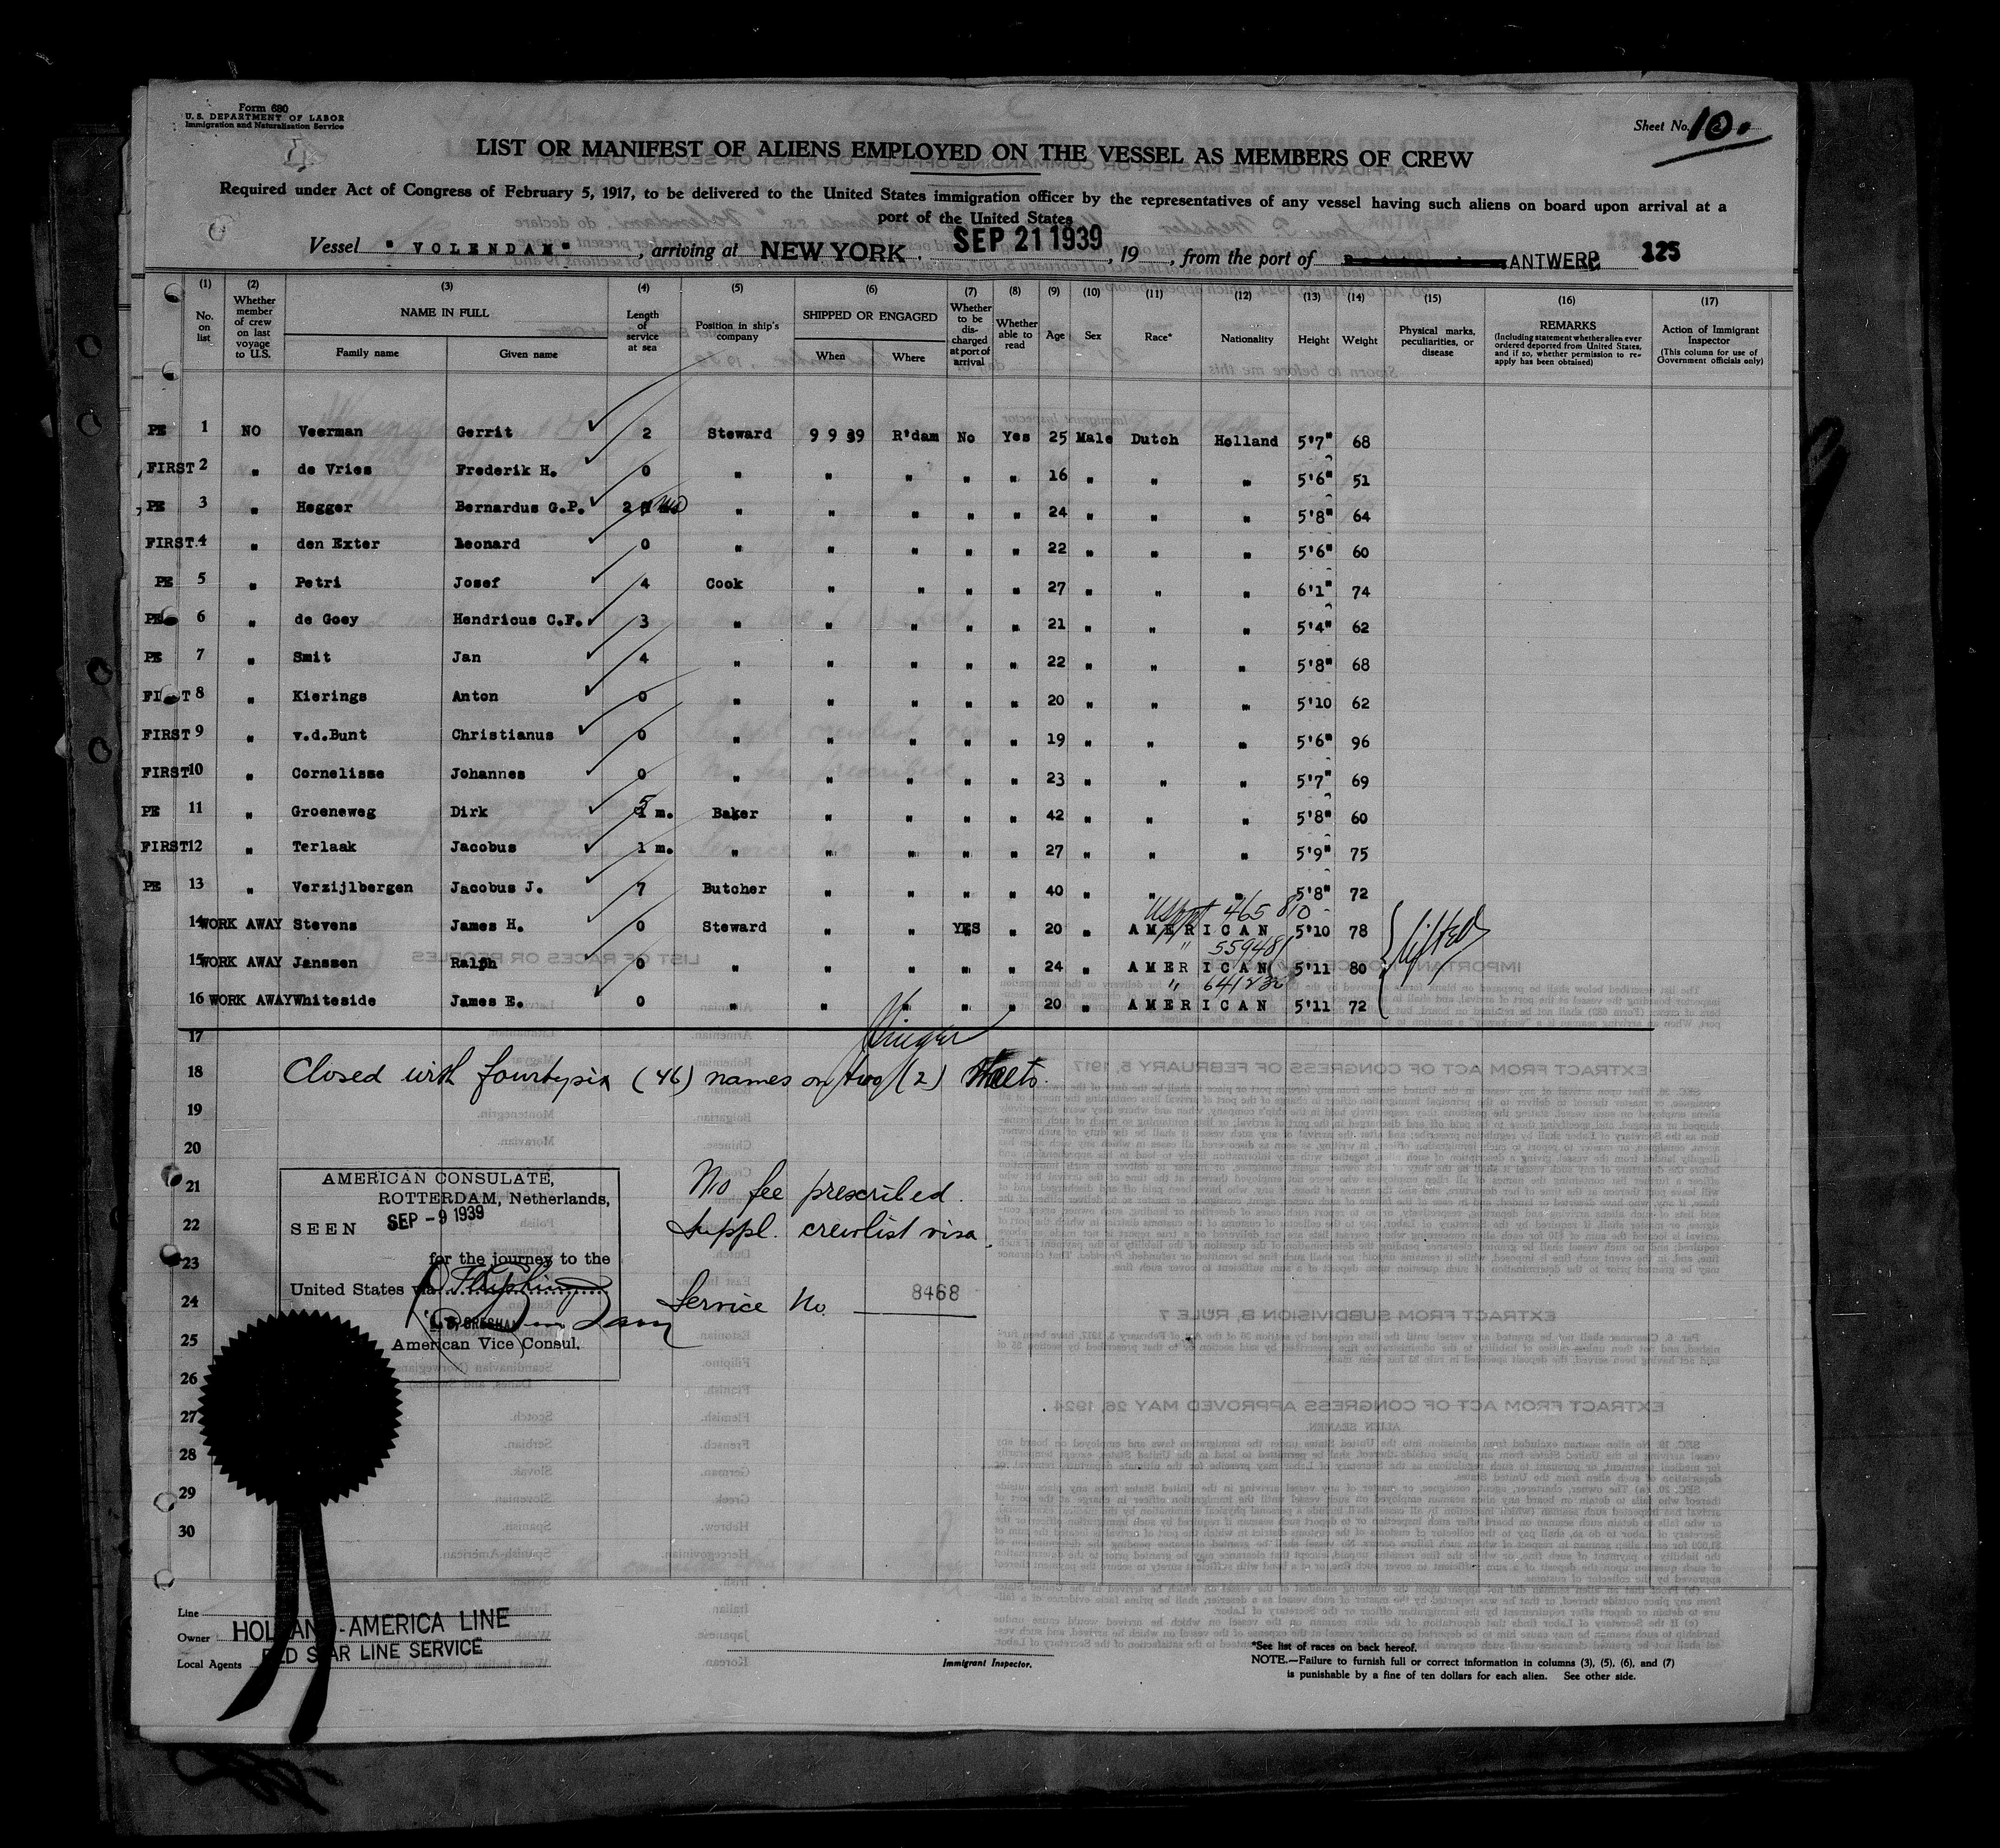 Form 680
U. S. DEPARTMENT OF LABOR
Immigration and Naturalization Service
Sheet No. 10.
LIST OR MANIFEST OF ALIENS EMPLOYED ON THE VESSEL AS MEMBERS OF CREW
Required under Act of Congress of February 5, 1917, to be delivered to the United States immigration officer by the representatives of any vessel having such aliens on board upon arrival at a
port of the United States
Vessel "VOLENDAM", arriving at NEW YORK. SEP 21 1939, 19 , from the port of ANTWERP 125
(1) (2) (3) (4) (5) (6) (7) (8) (9) (10) (11) (12) (13) (14) (15) (16) (17)
No. on list Whether member of crew on last voyage to U.S. NAME IN FULL Family name Given name Length of service at sea Position in ship's company SHIPPED OR ENGAGED When Where Whether to be discharged at port of arrival Whether able to read Age Sex Race* Nationality Height Weight Physical marks, peculiarities, or disease REMARKS (Including statement whether alien ever ordered deported from United States, and if so, whether permission to reapply has been obtained) Action of Immigrant Inspector (This column for use of Government officials only)
PE 1 NO Veerman Gerrit 2 Steward 9 9 39 R'dam No Yes 25 Male Dutch Holland 5'7" 68
FIRST 2 " de Vries Frederik H. 0 " " " " " 16 " " " 5'6" 51
PE 3 " Hegger Bernardus G.P. 2 " " " " " 24 " " " 5'8" 64
FIRST 4 " den Exter Leonard 0 " " " " " 22 " " " 5'6" 60
PE 5 " Petri Josef 4 Cook " " " " 27 " " " 6'1" 74
PE 6 " de Goey Hendricus C.F. 3 " " " " " 21 " " " 5'4" 62
PE 7 " Smit Jan 4 " " " " " 22 " " " 5'8" 68
FIRST 8 " Kierings Anton 0 " " " " " 20 " " " 5'10 62
FIRST 9 " v.d.Bunt Christianus 0 " " " " " 19 " " " 5'6" 96
FIRST 10 " Cornelisse Johannes 0 " " " " " 23 " " " 5'7" 69
PE 11 " Groeneweg Dirk 5 m. Baker " " " " 42 " " " 5'8" 60
FIRST 12 " Terlaak Jacobus 1 m. " " " " " 27 " " " 5'9" 75
PE 13 " Verzijlbergen Jacobus J. 7 Butcher " " " " 40 " " " 5'8" 72
US ppt 465 810
14 WORK AWAY Stevens James H. 0 Steward " " YES " 20 " AMERICAN 5'10 78 lifted
" 559481
15 WORK AWAY Janssen Ralph 0 " " " " " 24 " AMERICAN 5'11 80
" 641232
16 WORK AWAY Whiteside James E. 0 " " " " " 20 " AMERICAN 5'11 72
17
18 Closed with fourtysix (46) names on two (2) sheets.
19
20
AMERICAN CONSULATE,
ROTTERDAM, Netherlands,
SEEN SEP -9 1939
for the journey to the
United States via
American Vice Consul.
21 No fee prescribed.
22 Suppl. crewlist visa.
23
24 Service No. 8468
25
26
27
28
29
30
Line
Owner HOLLAND-AMERICA LINE
Local Agents RED STAR LINE SERVICE
Immigrant Inspector.
*See list of races on back hereof.
NOTE.—Failure to furnish full or correct information in columns (3), (5), (6), and (7)
is punishable by a fine of ten dollars for each alien. See other side.